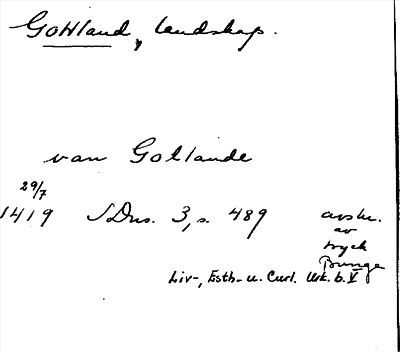 Gottland, landskap.
van Gotlande
29/7
1419 SDns. 3, s. 489 avskr.
av
tryck
Bunge
Liv-, Esth- u. Curl. Urk. b. V